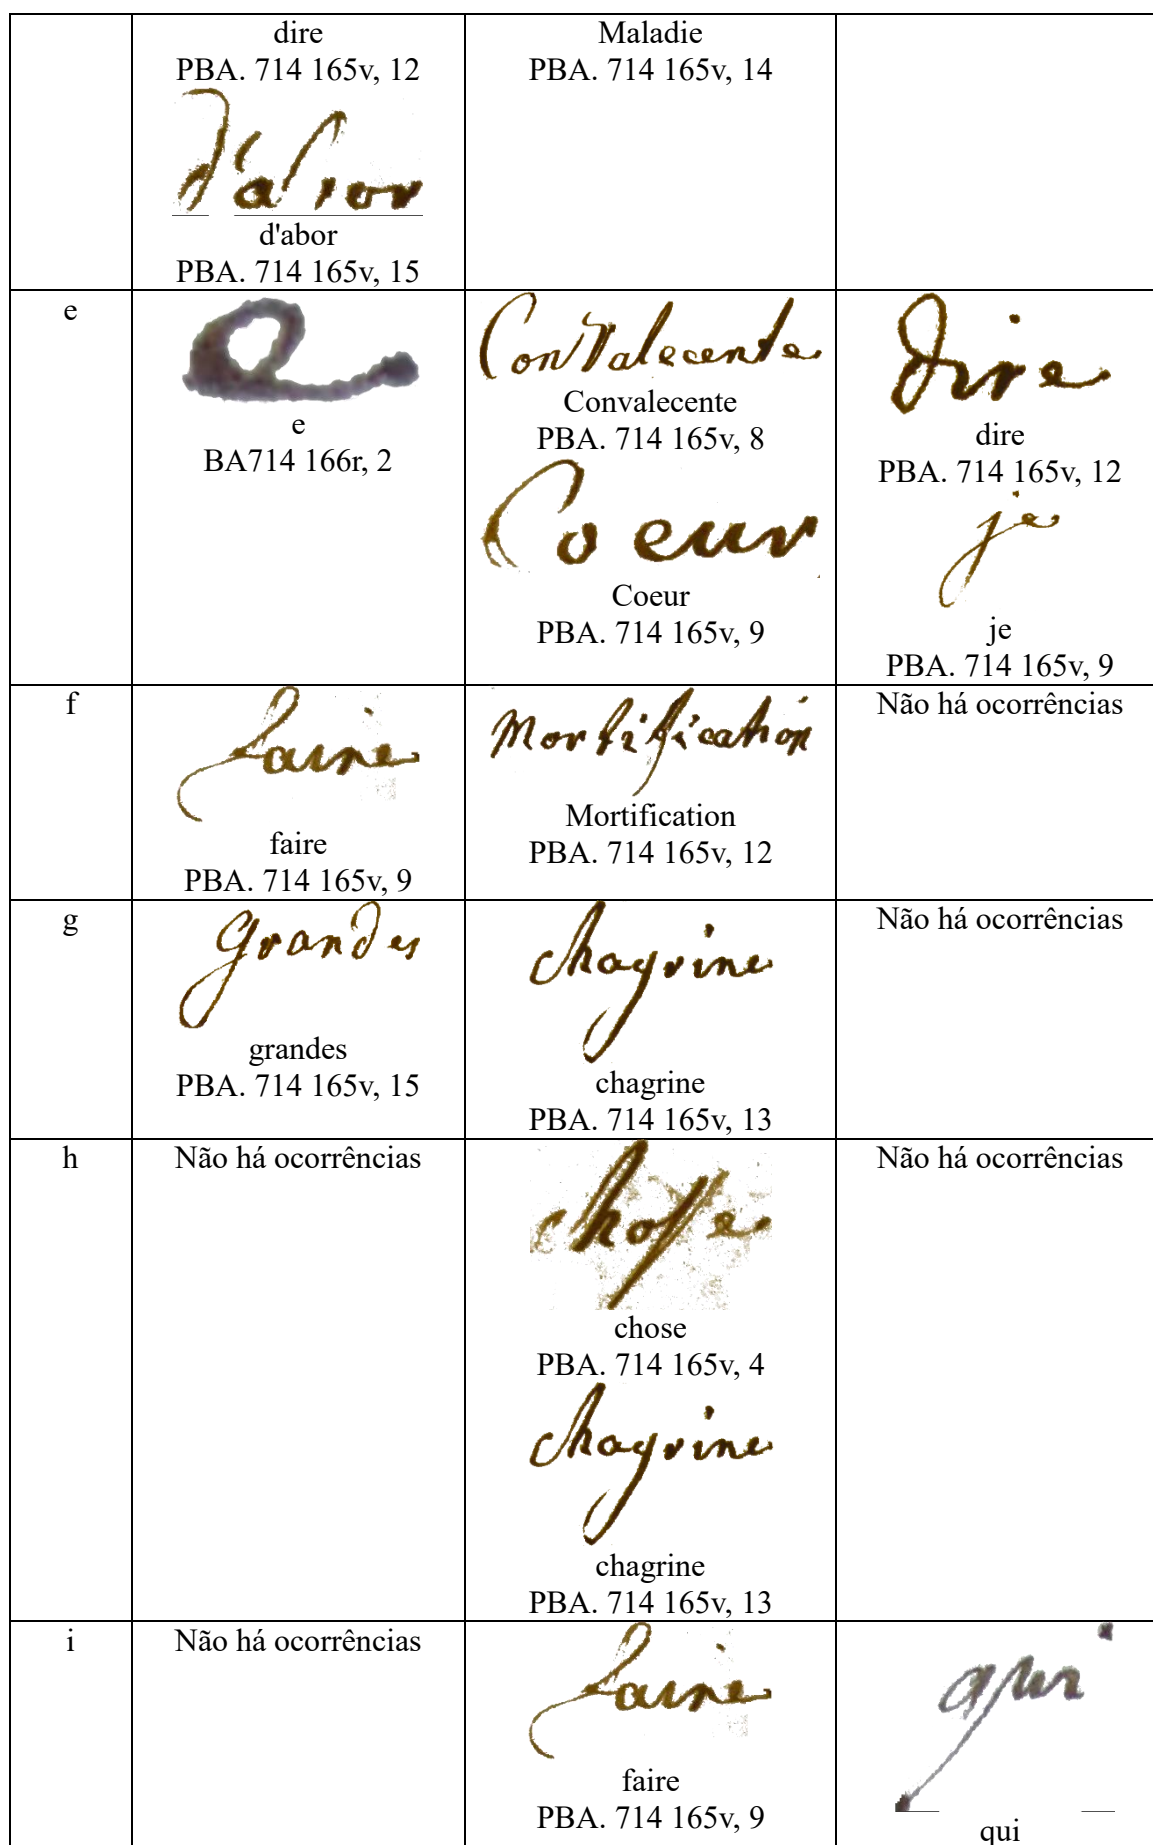 dire
PBA. 714 165v, 12
d'abor
d'abor
PBA. 714 165v, 15
Maladie
PBA. 714 165v, 14
e
e
e
BA714 166r, 2
Convalecente
Convalecente
PBA. 714 165v, 8
Coeur
Coeur
PBA. 714 165v, 9
dire
dire
PBA. 714 165v, 12
je
je
PBA. 714 165v, 9
f
faire
faire
PBA. 714 165v, 9
Mortification
Mortification
PBA. 714 165v, 12
Não há ocorrências
g
grandes
grandes
PBA. 714 165v, 15
chagrine
chagrine
PBA. 714 165v, 13
Não há ocorrências
h
Não há ocorrências
chose
chose
PBA. 714 165v, 4
chagrine
chagrine
PBA. 714 165v, 13
Não há ocorrências
i
Não há ocorrências
faire
faire
PBA. 714 165v, 9
qui
qui